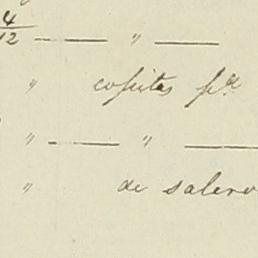 4/12 — " —
" copitas pª
" — " —
" de salero